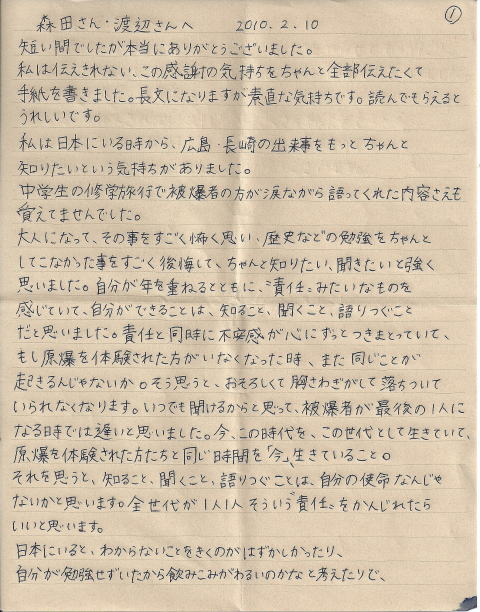 ①
森田さん・渡辺さんへ 2010.2.10
短い間でしたが本当にありがとうございました。
私は伝えきれない、この感謝の気持ちをちゃんと全部伝えたくて
手紙を書きました。長文になりますが素直な気持ちです。読んでもらえると
うれしいです。
私は日本にいる時から、広島・長崎の出来事をもっとちゃんと
知りたいという気持ちがありました。
中学生の修学旅行で被爆者の方が涙ながら語ってくれた内容さえも
覚えてませんでした。
大人になって、その事をすごく怖く思い、歴史などの勉強をちゃんと
してこなかった事をすごく後悔して、ちゃんと知りたい、聞きたいと強く
思いました。自分が年を重ねるとともに、"責任"みたいなものを
感じていて、自分ができることは、知ること、聞くこと、語りつぐこと
だと思いました。責任と同時に不安感が心にずっとつきまとっていて、
もし原爆を体験された方がいなくなった時、また同じことが
起きるんじゃないか。そう思うと、おそろしくて胸さわぎがして落ちついて
いられなくなります。いつでも聞けるからと思って、被爆者が最後の1人に
なる時では遅いと思いました。今、この時代を、この世代として生きていて、
原爆を体験された方たちと同じ時間を「今」生きていること。
それを思うと、知ること、聞くこと、語りつぐことは、自分の使命なんじゃ
ないかと思います。全世代が1人1人そういう"責任"をかんじれたら
いいと思います。
日本にいると、わからないことをきくのがはずかしかったり、
自分が勉強せずいたから飲みこみがわるいのかなと考えたりで、